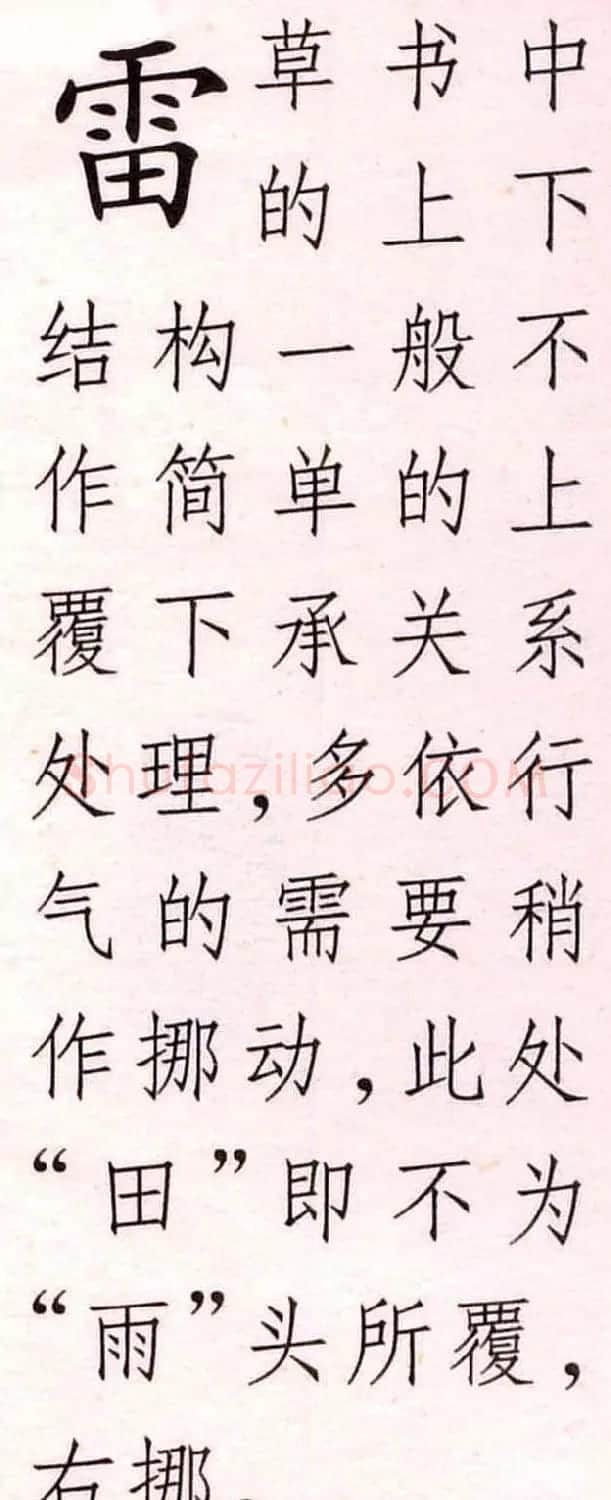 雷
草书中
的上下
结构一般不
作简单的上
覆下承关系
处理,多依行
气的需要稍
作挪动,此处
“田”即不为
“雨”头所覆,
右挪。